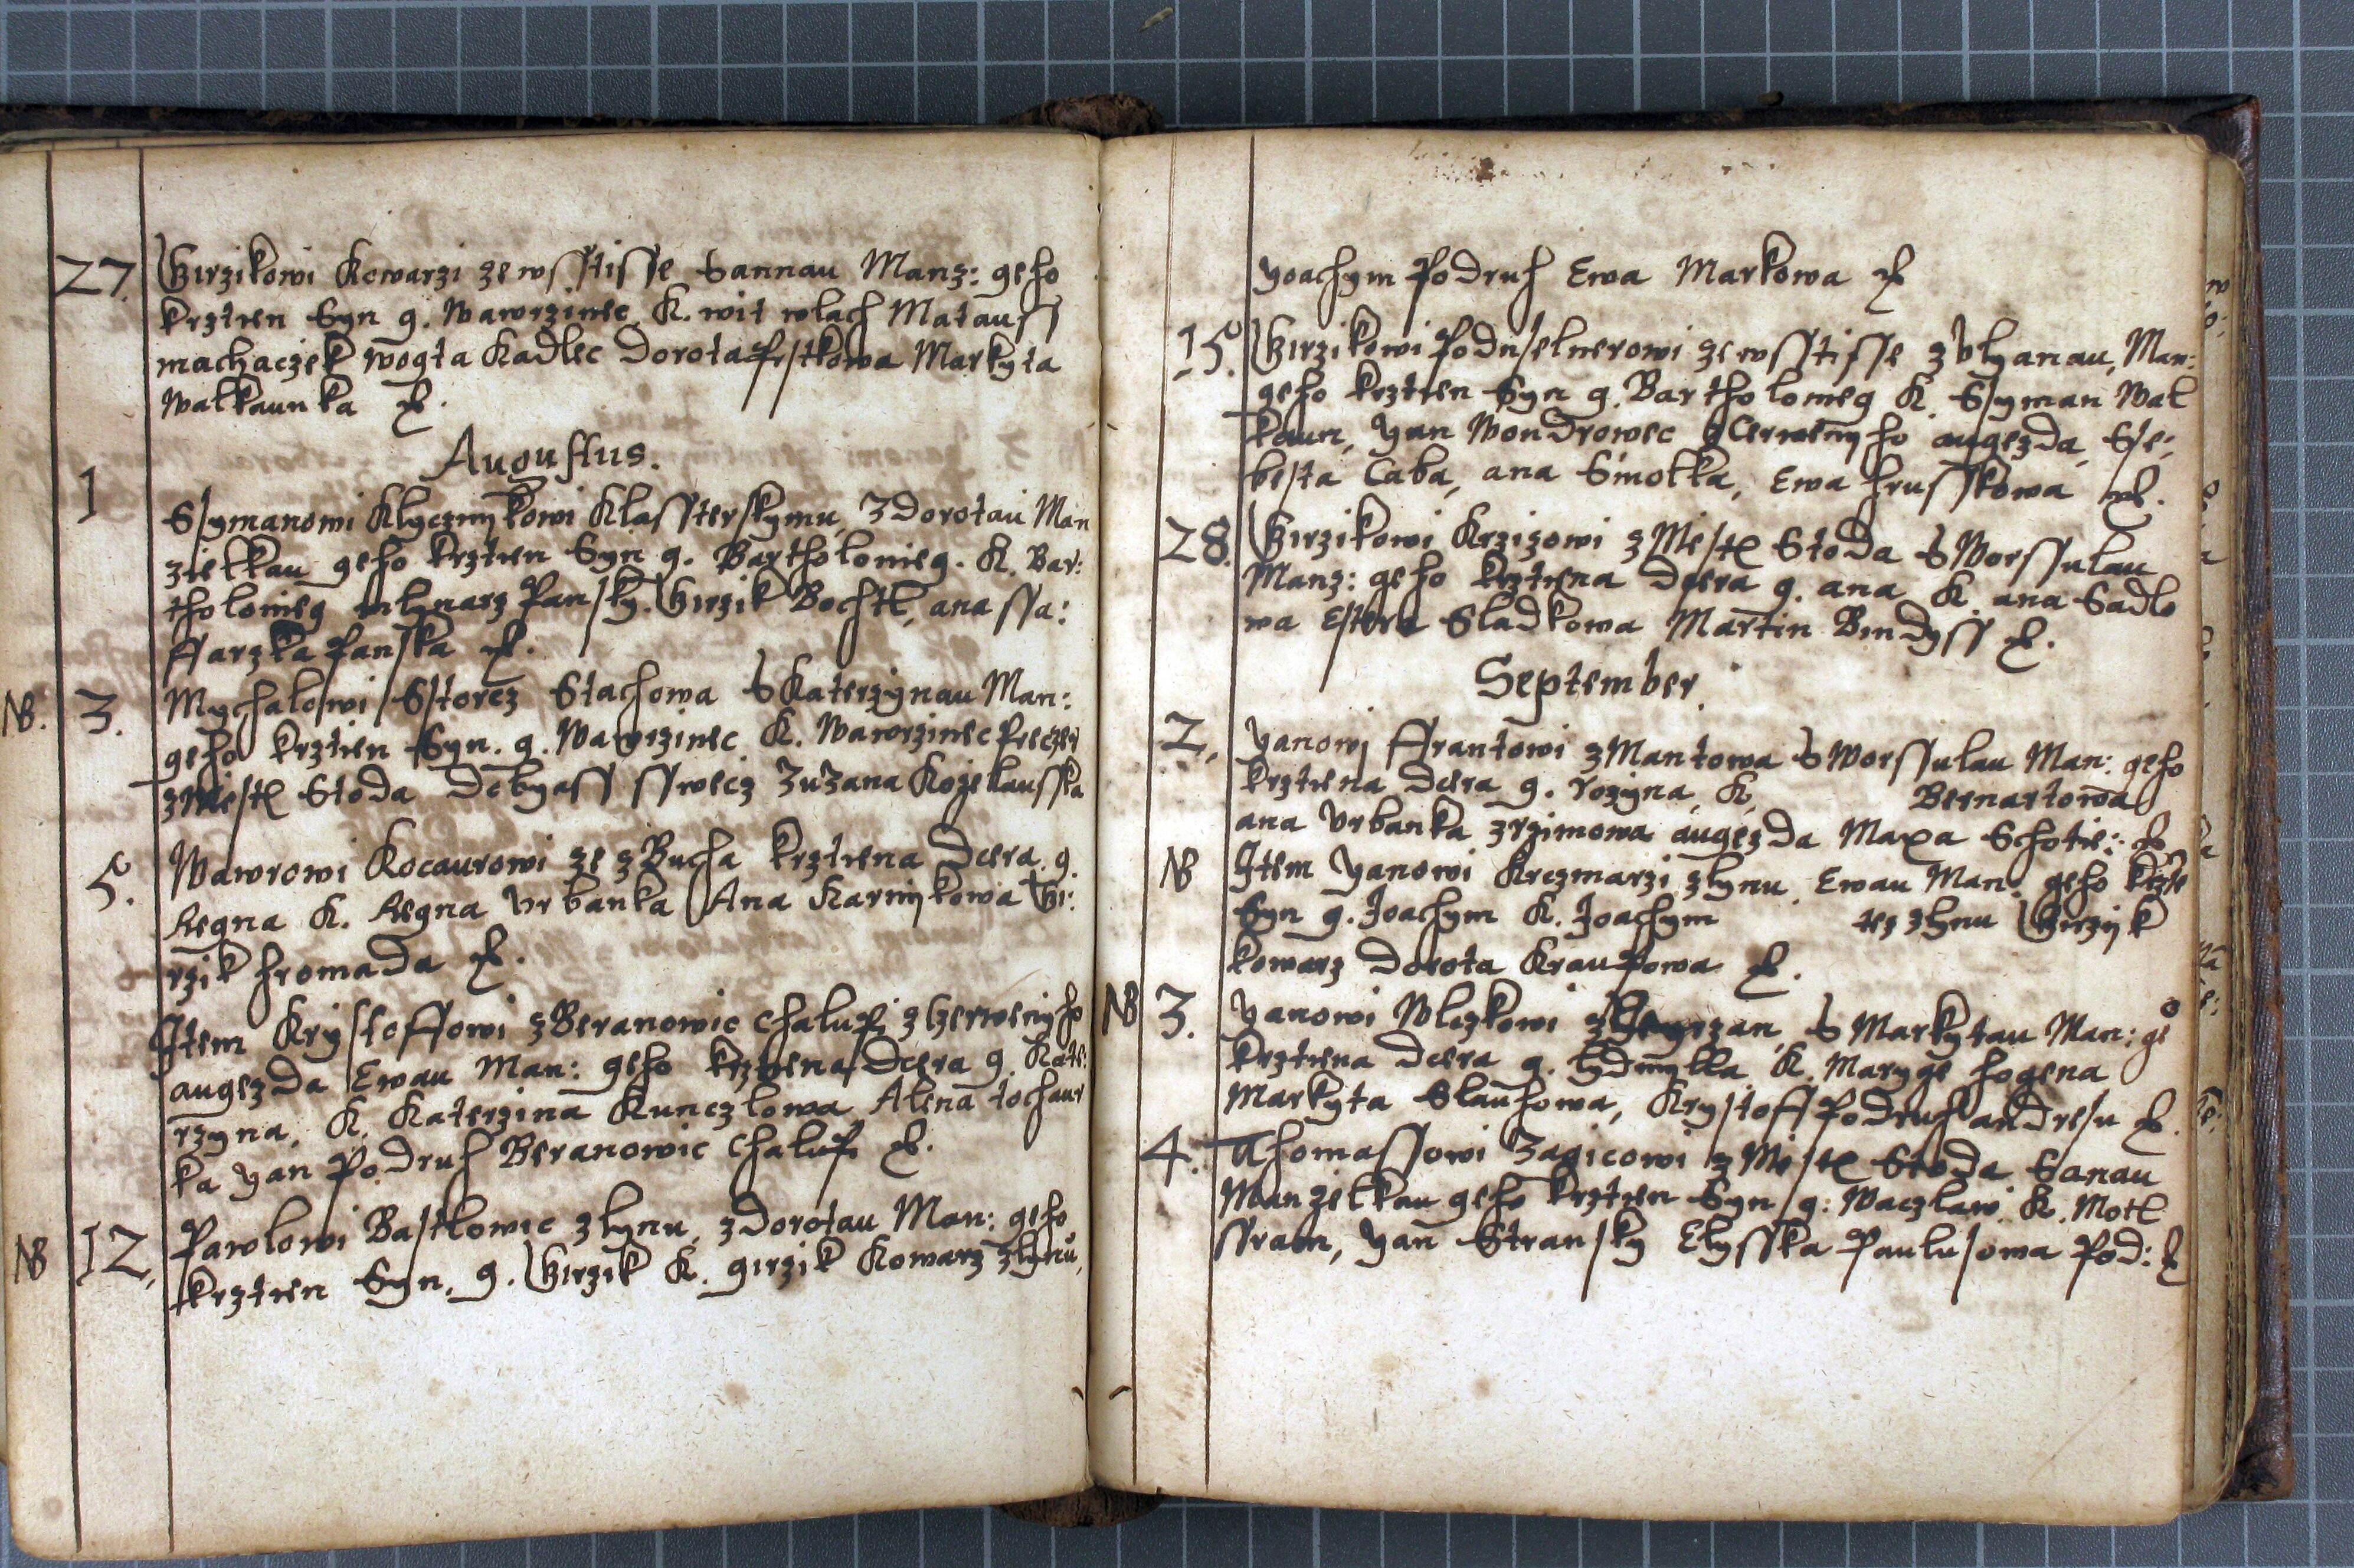 27. Girzikowi Kowarzi ze wsstisse S annau Manz: geho
krztien Syn g. Wawrzinec K. wit wlach Matauss
machaczek wogta Kadlec Dorota Markyta
Walkaunka
Augustus.
1 Ssymanowi Klycznykowi Klassterskymu, z Dorotau Man
zielkau geho krztien Syn g. Bartholomieg. K. Bar:
tholomieg mlynarz Pansky. Girzik Bochtl, ana ssa:
ffarzka Panska
NB. 3. Mychalowi Stachowa S Katerzynau Man:
geho krztien Syn. g. Wawrzinec K. Wawrzinec
z Miesta Stoda sswecz Zuzana Kozelausska
5. Wawrowi Kocaurowi ze zBucha krztiena dcera g.
Regna K. Regna Urbanka Ana Karnykowa Gi:
rzik hromada
Item Krystoffowi z Beranowic chalup z Czerwenyho
augezda Ewau Man: geho krztiena dcera g. Kate:
rzyna, K. Katerzina Kunczlowa Alena tochaur
ka yan Podruh Beranowic chalup
NB 12, Pawlowi Bastlowic z lynu, z Dorotau Man: geho
krztien Syn. g. Girzik K. girzik Kowarz z lynu,
yoachym Podruh Ewa Markowa
15. Girzikowi ze wsstisse z Ulyanau, Man:
geho krztien Syn g. Bartholomeg K. Ssyman Wal
kaun, yan Wondrowec z Cerwenyho augezda, Sse:
besta Caba, ana Smolka, Ewa hrusskowa
28. Girzikowi Krzizowi z Miesta Stoda S Worssulau
Manz: geho krztiena dcera g. ana K. ana Sadlo
wa Estera Sladkowa Martin Bindyss
September.
2, yanowi ffrantowi z Mantowa S Worssulau Man: geho
krztiena dcera g. rozyna, K. Bernartowa
ana Urbanka augezda Maxa Schotie:
NB Item yanowi Krczmarzi z lynu, Ewau Man: geho krztie
Syn g. Joachym K. Joachym tez z lynu Girzyk
kowarz dorota Kraupowa
NB 3. yanowi Wlczkowi S Markytau Man: geo
krztiena dcera g. lydmylla K. Maryge hogena
Markyta Slauhowa, Krystoff Podruh andresu
4. Thomassowi Zagicowi z Miesta Stoda S anau
Manzelkau geho krztien Syn g: Waczlaw. K. Motl
ssram, yan Stransky Elysska Paulusowa Pod: